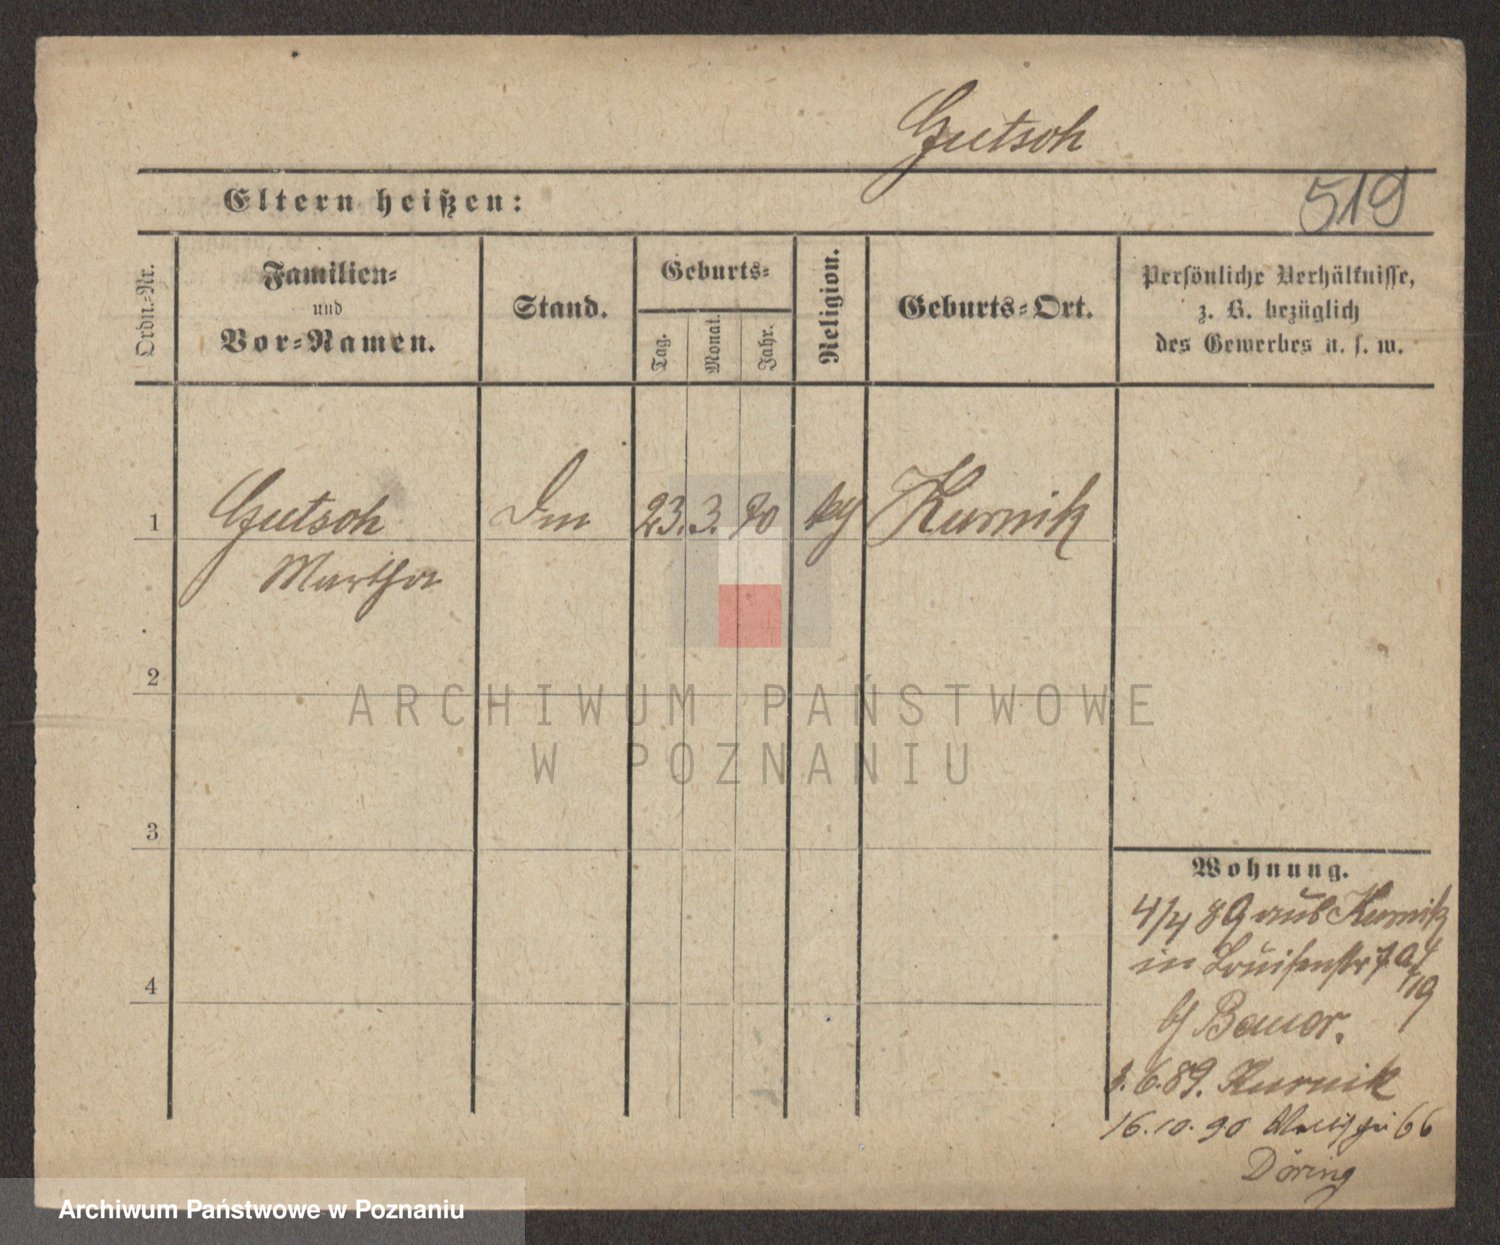 Gutsch
Eltern heißen:
519
Ordn.-Nr.
Familien-
und
Vor-Namen.
Stand.
Geburts-
Tag.
Monat.
Jahr.
Religion.
Geburts-Ort.
Persönliche Verhältnisse,
z. B. bezüglich
des Gewerbes u. s. w.
1 Gutsch 23. 3. 70 Kurnik
Martha
2
3
4
Wohnung.
4/4 89 aus Kurnik
in Louisenstr 7a
Bauer.
6.89. Kurnik
16.10.90 66
Döring
ARCHIWUM PAŃSTWOWE
W POZNANIU
Archiwum Państwowe w Poznaniu